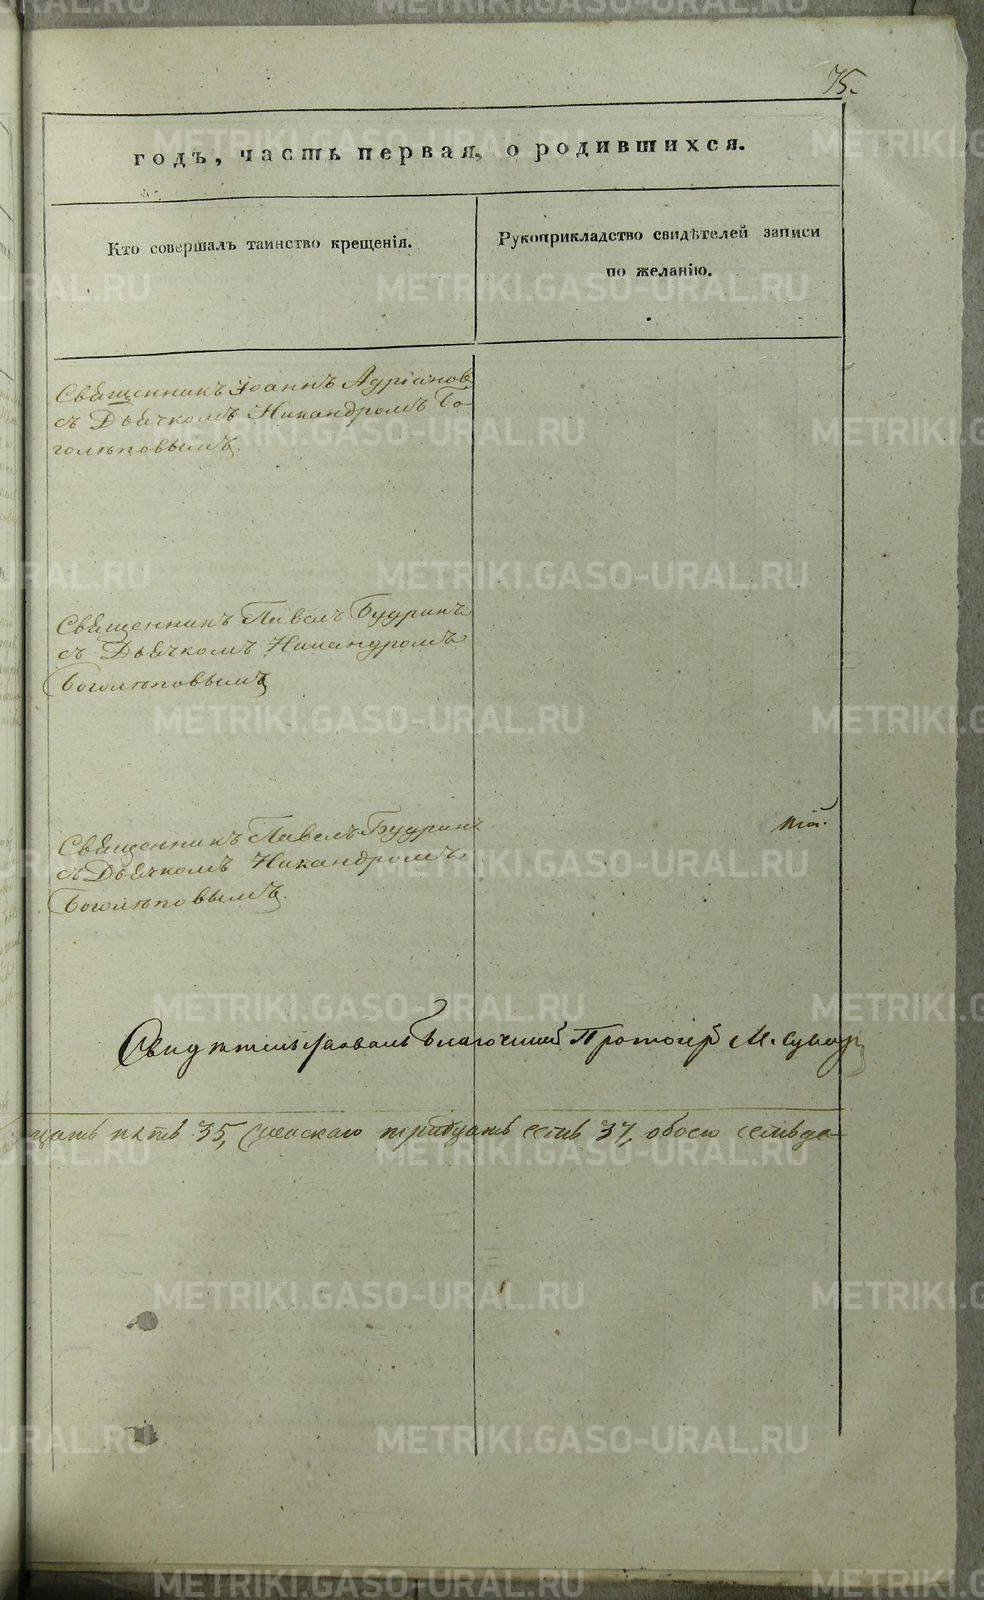 75.
годъ, часть первая, о родившихся.
Кто совершалъ таинство крещенія.
Рукоприкладство свидѣтелей записи
по желанію.
Священникъ Іоаннъ Адріановъ
съ Дьячкомъ Никандромъ Бо-
голѣповымъ.
Священникъ Павелъ Будринъ
съ Дьячкомъ Никандромъ
Боголѣповымъ
Священникъ Павелъ Будринъ
съ Дьячкомъ Никандромъ
Боголѣповымъ.
Свидѣтельствовалъ Благочинный Протоіерей М.
цать пять 35, женскаго тридцать 37, обоего семьде-
METRIKI.GASO-URAL.RU